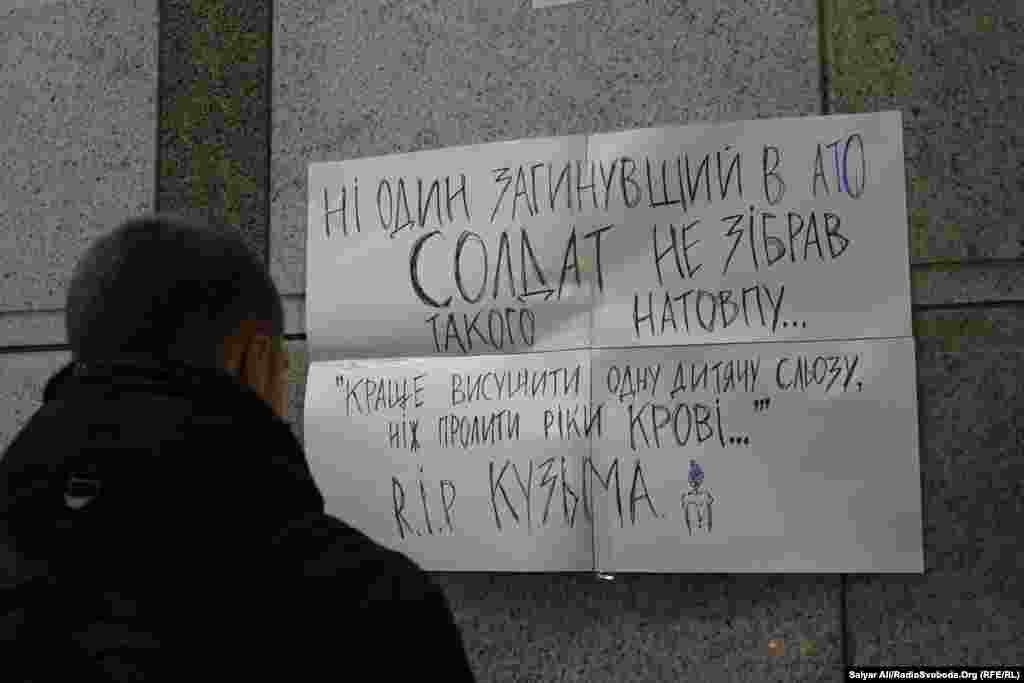 НІ ОДИН ЗАГИНУВЩИЙ В АТО
СОЛДАТ НЕ ЗІБРАВ
ТАКОГО НАТОВПУ...
"КРАЩЕ ВИСУШИТИ ОДНУ ДИТЯЧУ СЛЬОЗУ,
НІЖ ПРОЛИТИ РІКИ КРОВІ..."
R.I.P КУЗЬМА.
Salyar Ali/RadioSvoboda.Org (RFE/RL)